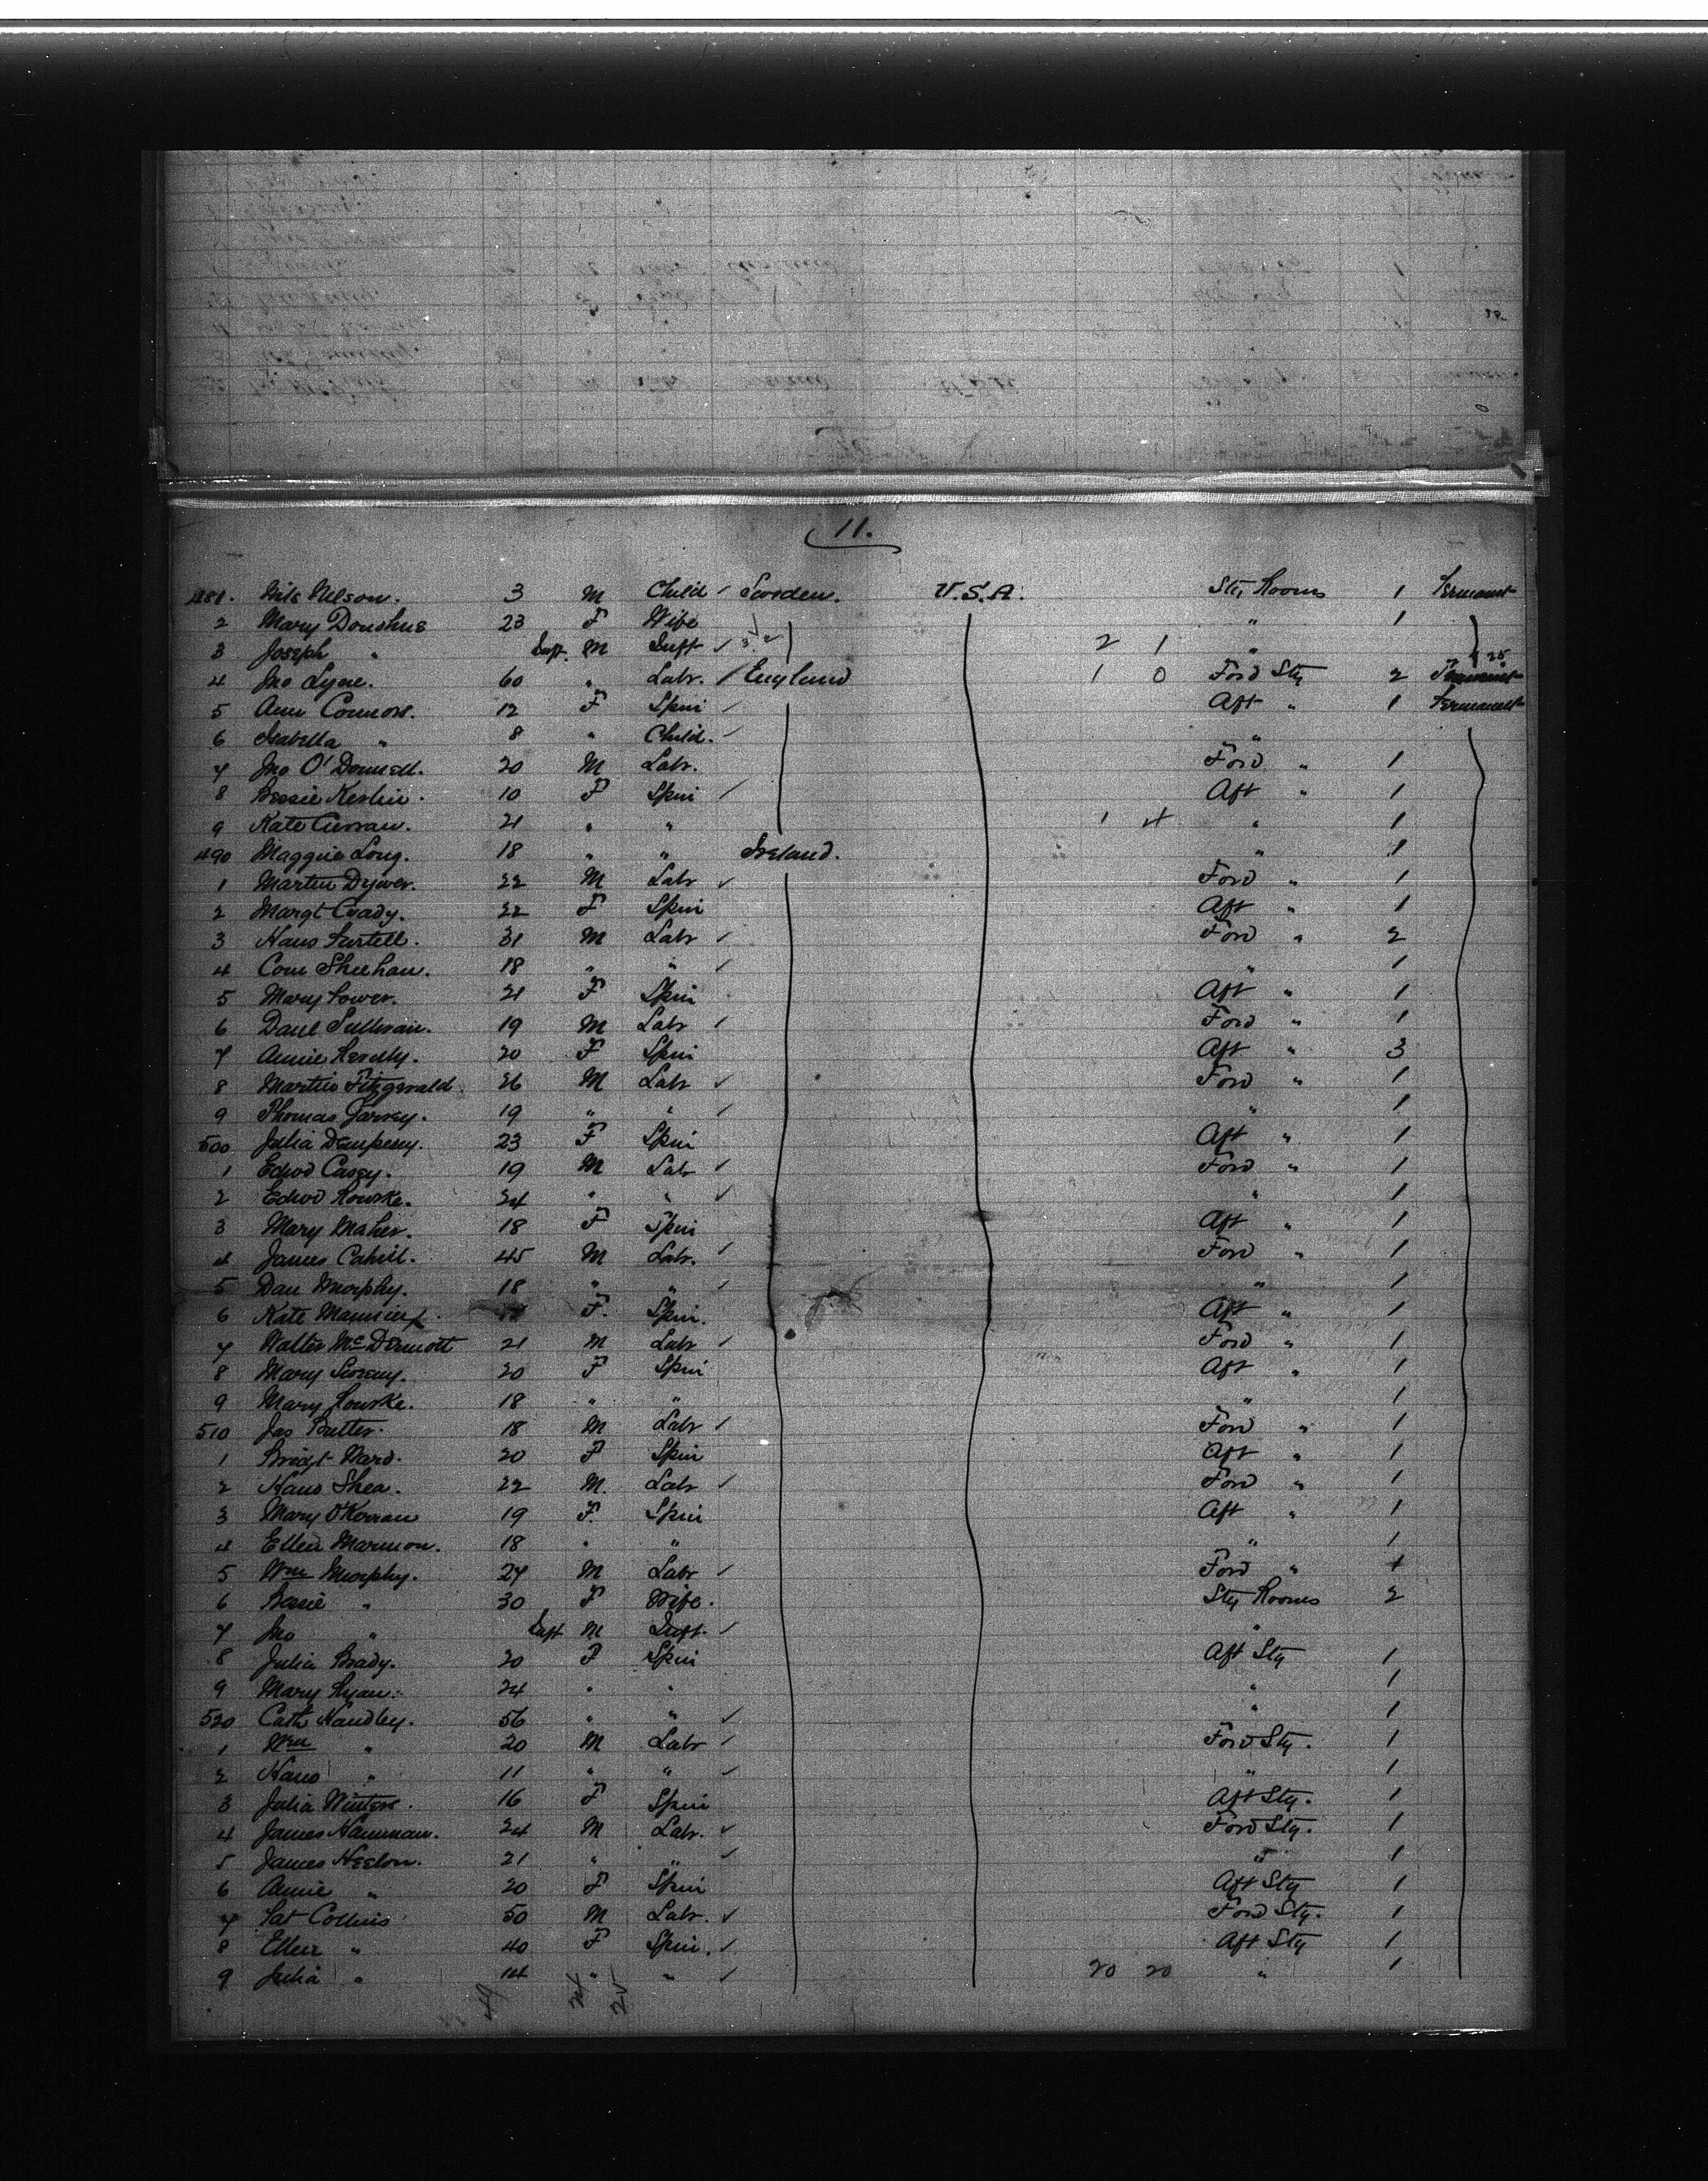 11.
481. Nils Nelson. 3 M Child Sweden. U.S.A. Stg Rooms 1 Permanent
2 Mary Donohue 23 F Wife " 1
3 Joseph " Inft. M Inft 2 1 "
4 Jno Lyne. 60 " Labr. England 1 0 Ford Stg 2
5 Ann Connors. 12 F Spin Aft " 1 Permanent
6 Isabella " 8 " Child. "
7 Jno O'Donnell. 20 M Labr. Ford " 1
8 Bessie Kerlin. 10 F Spin Aft " 1
9 Kate Curran. 21 " " 1 4 " 1
490 Maggie Long. 18 " " Ireland. " 1
1 Martin Dywer. 22 M Labr Ford " 1
2 Margt Coady. 22 F Spin Aft " 1
3 Hans 31 M Labr Ford " 2
4 Corn Sheehan. 18 " " " 1
5 Mary Power. 21 F Spin Aft " 1
6 Danl Sullivan. 19 M Labr Ford " 1
7 Annie 20 F Spin Aft " 3
8 Martin Fitzgerald 26 M Labr Ford " 1
9 Thomas Garvey. 19 " " " 1
500 Julia Dempsey. 23 F Spin Aft " 1
1 Edwd Casey. 19 M Labr Ford " 1
2 Edwd Rourke. 24 " " " 1
3 Mary Maher. 18 F Spin Aft " 1
4 James Cahill. 45 M Labr. Ford " 1
5 Dan Murphy. 18 " " " 1
6 Kate F. Spin. Aft " 1
7 Walter McDermott 21 M Labr Ford " 1
8 Mary 20 F Spin Aft " 1
9 Mary Rourke. 18 " " " 1
510 Jas Butler. 18 M Labr Ford " 1
1 Bridgt Ward. 20 F Spin Aft " 1
2 Hans Shea. 22 M. Labr Ford " 1
3 Mary 19 F. Spin Aft " 1
4 Ellen Marmon. 18 " " " 1
5 Wm Murphy. 24 M Labr Ford " 1
6 " 30 F Wife. Stg Rooms 2
7 Jno " Inft M Inft. "
8 Julia Brady. 20 F Spin Aft Stg 1
9 Mary Ryan. 24 " " " 1
520 Cath Handley. 56 " " " 1
1 Wm " 20 M Labr Ford Stg. 1
2 Hans " 11 " " " 1
3 Julia Winters. 16 F Spin Aft Stg. 1
4 James Hannan. 24 M Labr. Ford Stg. 1
5 James Heelon. 21 " " " 1
6 Annie " 20 F Spin Aft Stg 1
7 Pat Collins 50 M Labr. Ford Stg. 1
8 Ellen " 40 F Spin. Aft Stg 1
9 Julia " 14 " " 20 20 " 1
49 24 25